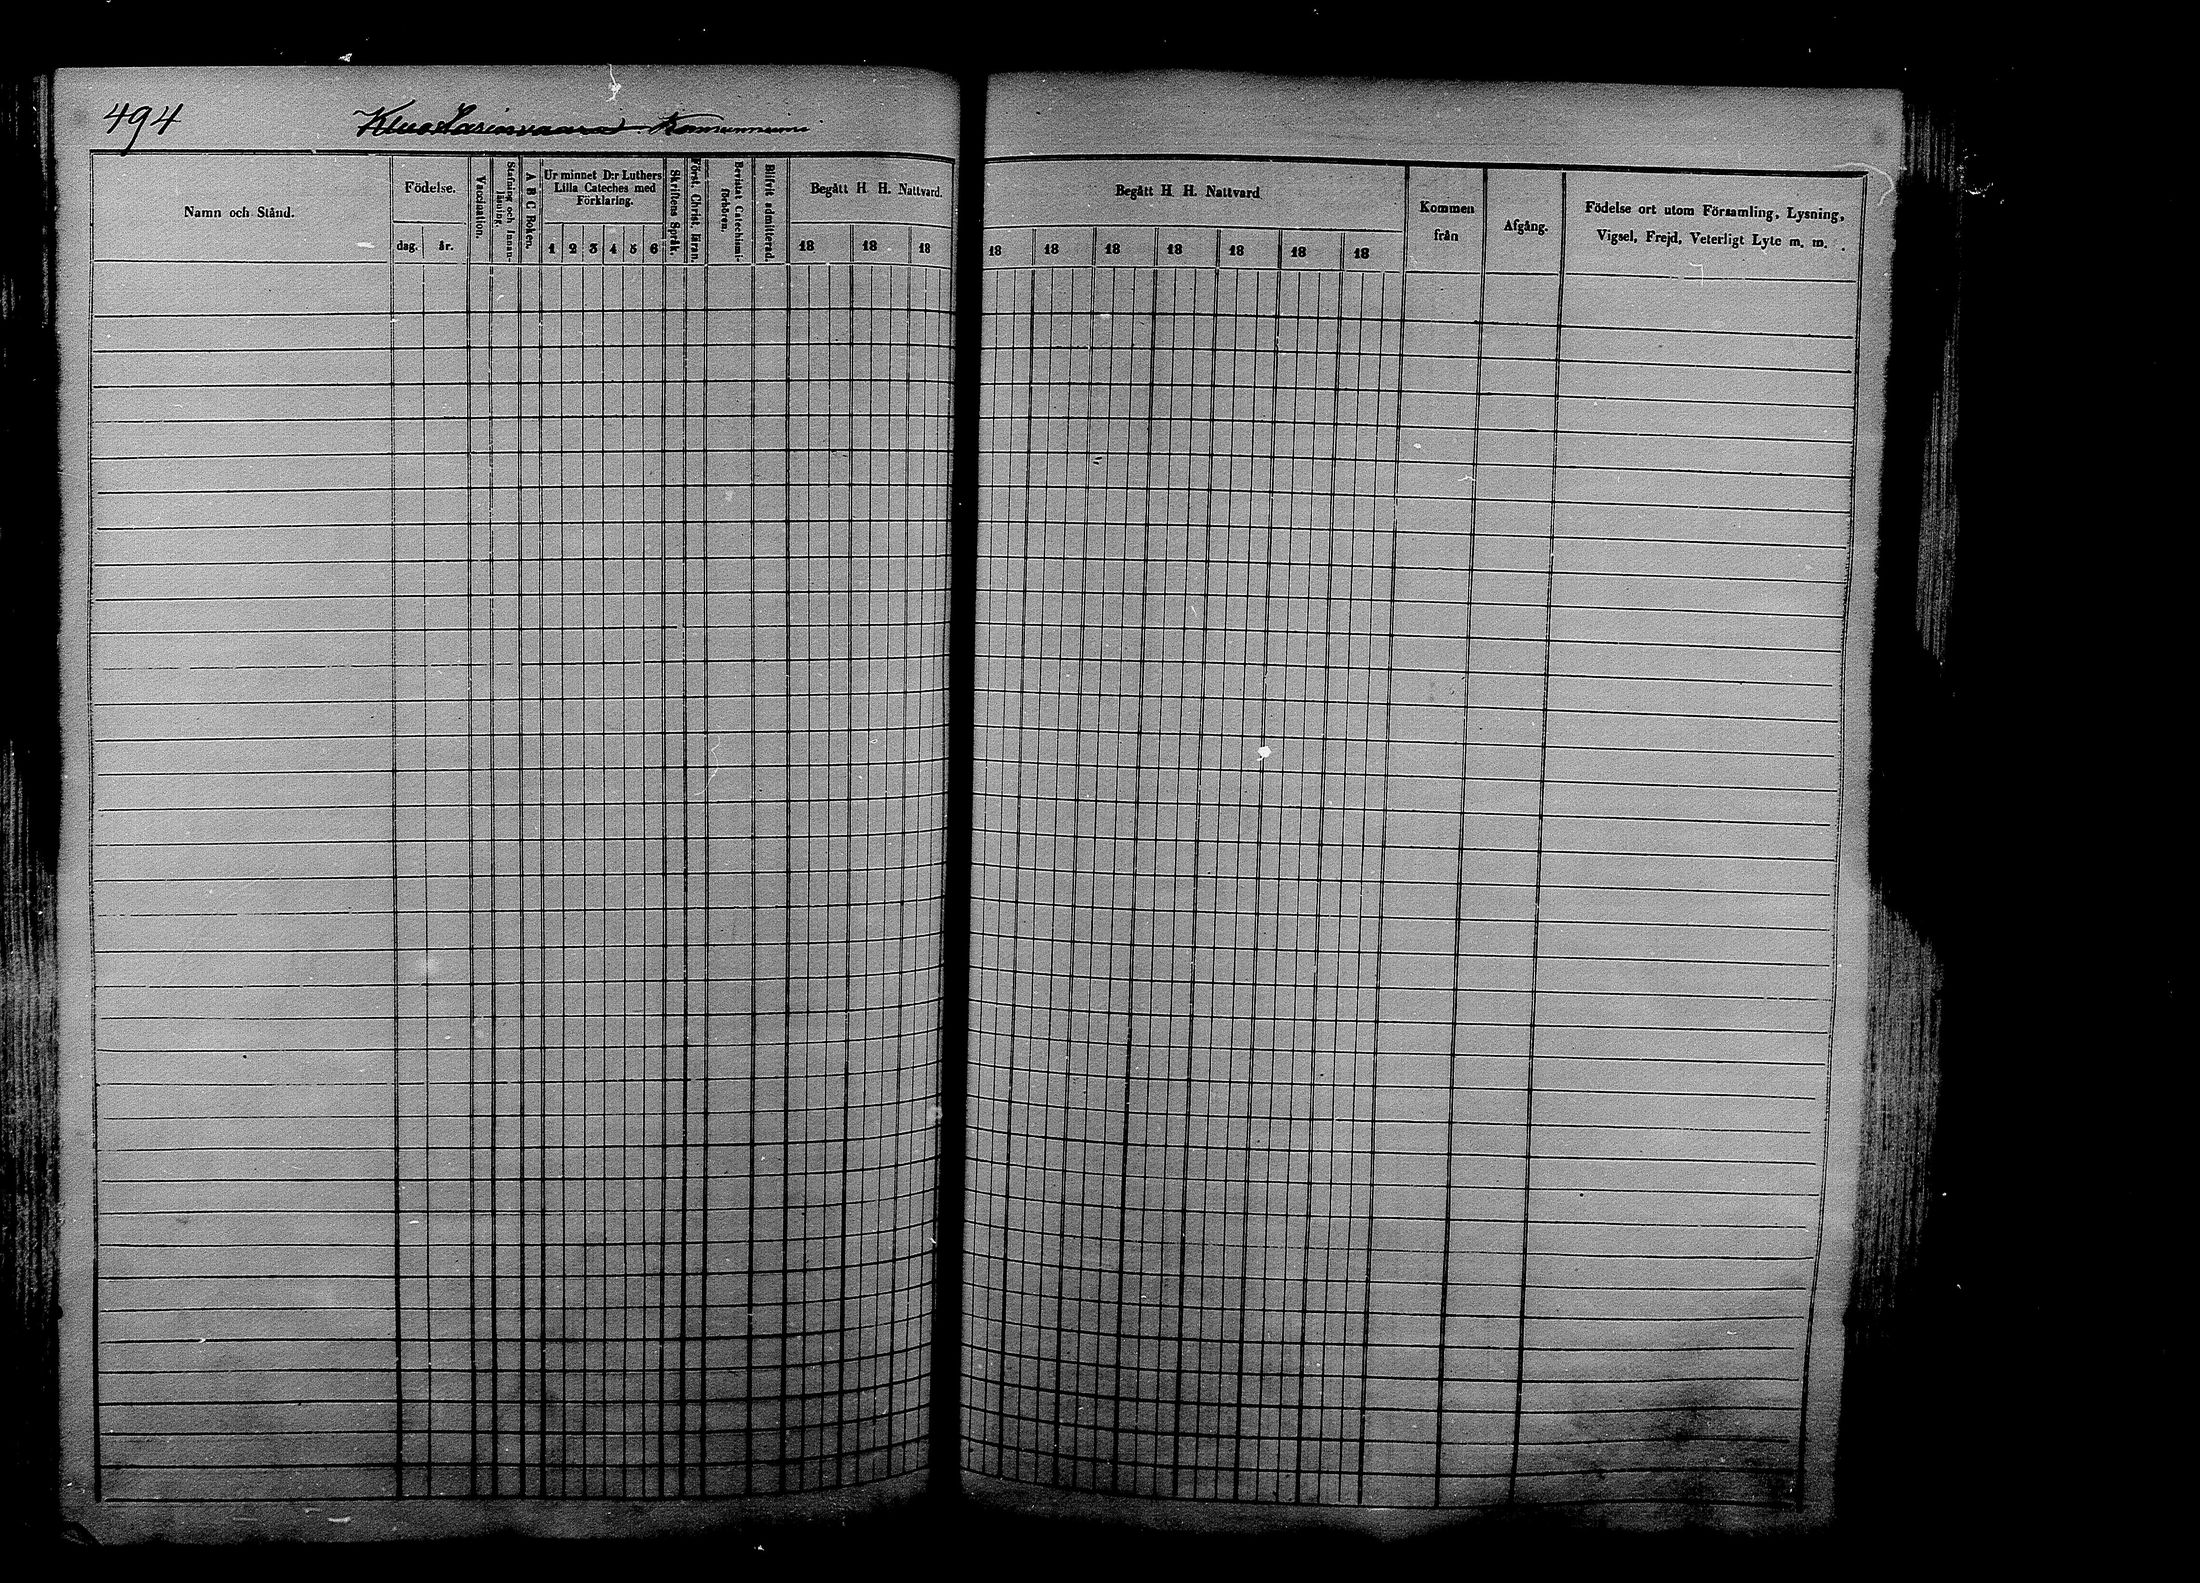 494
Namn och Stånd.
Födelse.
dag.
år.
Vaccination.
Stafning och Innan-
läsning.
A B C Boken.
Ur minnet D:r Luthers
Lilla Cateches med
Förklaring.
1 2 3 4 5 6
Skriftens Språk.
Först. Christ. läran.
Bevistat Catechismi-
förhören.
Blifvit admitterad.
Begått H H. Nattvard.
18 18 18
Begått H H. Nattvard
18 18 18 18 18 18 18
Kommen
från
Afgång.
Födelse ort utom Församling, Lysning,
Vigsel, Frejd, Veterligt Lyte m. m.